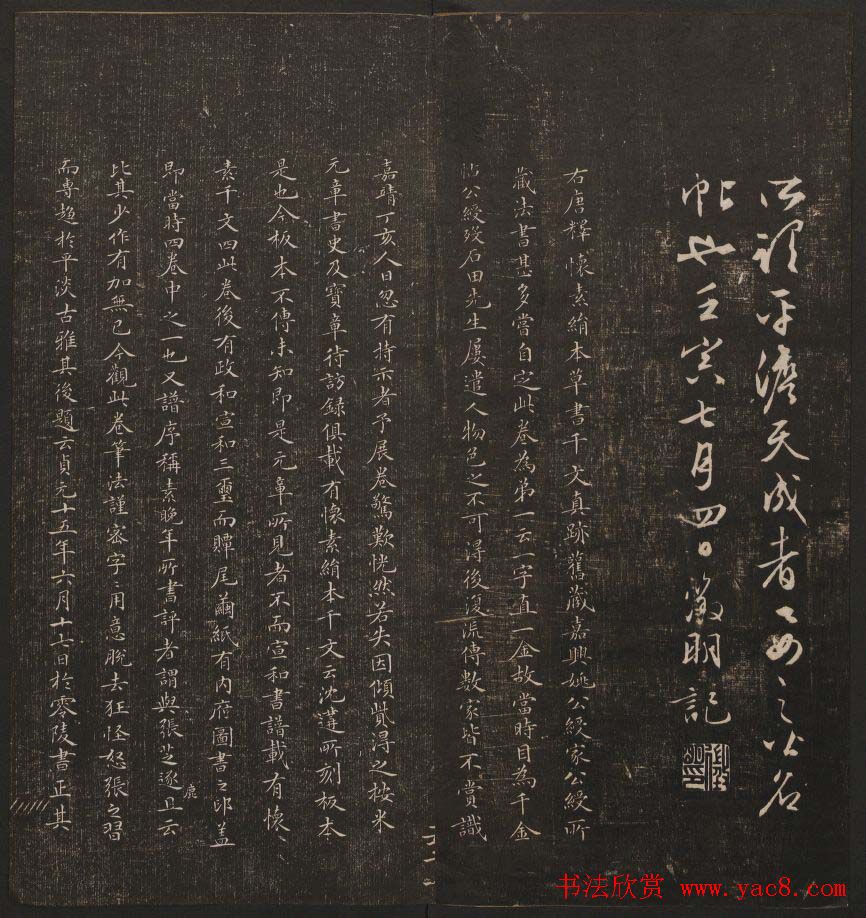 所谓平淡天成者
帖也壬寅七月四日徵明記
右唐釋懷素絹本草書千文真跡舊藏嘉興姚公綬家公綬所
藏法書甚多嘗自定此卷為第一云一字直一金故當時目為千金
帖公綬歿石田先生屢遣人物色之不可得後復流傳數家皆不賞識
嘉靖丁亥人日忽有持示者予展卷驚歎恍然若失因傾貲得之按米
元章書史及寶章待訪錄俱載有懷素絹本千文云沈遘所刻板本
是也今板本不傳未知即是元章所見者不而宣和書譜載有懷
素千文四此卷後有政和宣和三璽而贉尾繭紙有内府圖書之印盖
即當時四卷中之一也又譜序稱素晚年所書評者謂與張芝逐鹿且云
比其少作有加無已今觀此卷筆法謹密字〻用意脫去狂怪怒張之習
而專趨於平淡古雅其後題云貞元十五年六月十七日於零陵書正其
书法欣赏 www.yac8.com